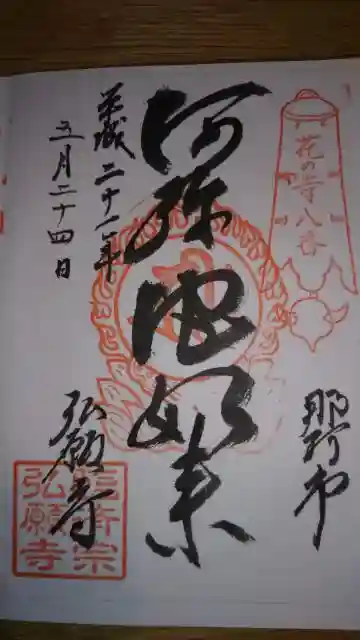 花の寺八番
那珂市
阿弥陀如来
平成二十一年
五月二十四日
弘願寺
弘願寺